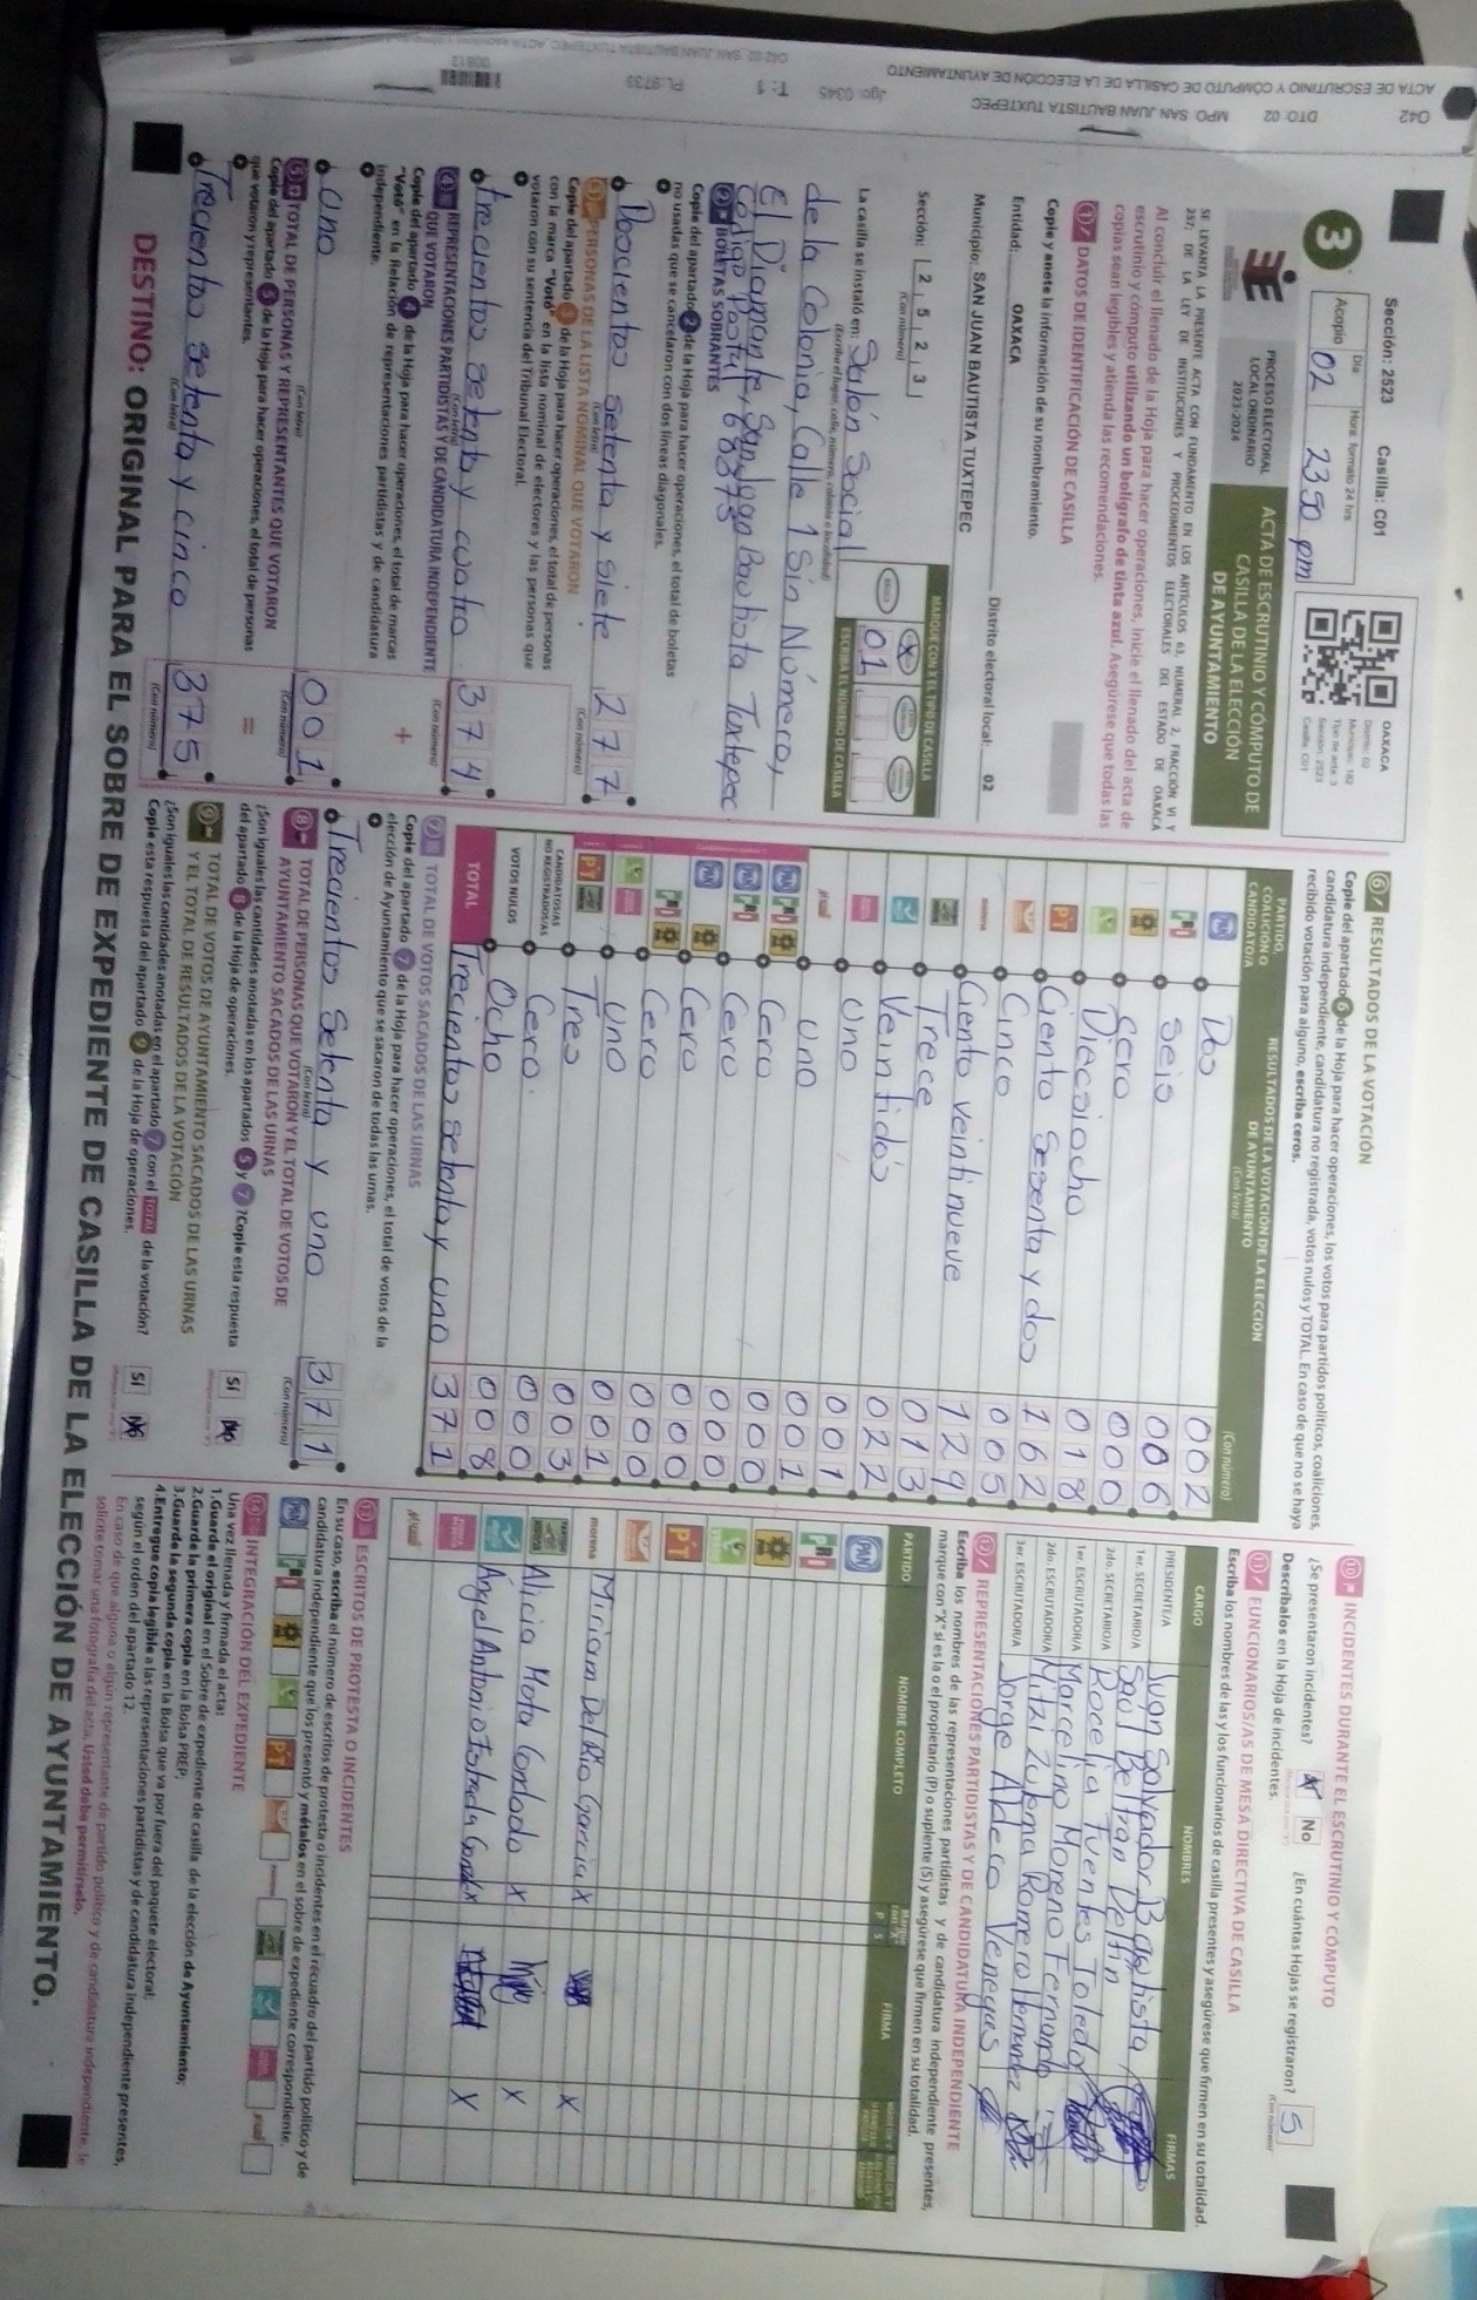 042 DTO: 02 MPO: SAN JUAN BAUTISTA TUXTEPEC
ACTA DE ESCRUTINIO Y CÓMPUTO DE CASILLA DE LA ELECCIÓN DE AYUNTAMIENTO
Jgo: 0345 T: 1 PL:9733
00812
Sección: 2523 Casilla: C01
Día Hora: formato 24 hrs
Acopio 02 2350 pm
3
OAXACA
Distrito: 02
Municipio: 182
Tipo de acta: 3
Sección: 2523
Casilla: C01
PROCESO ELECTORAL
LOCAL ORDINARIO
2023-2024
ACTA DE ESCRUTINIO Y CÓMPUTO DE
CASILLA DE LA ELECCIÓN
DE AYUNTAMIENTO
SE LEVANTA LA PRESENTE ACTA CON FUNDAMENTO EN LOS ARTÍCULOS 63, NUMERAL 2, FRACCIÓN VI Y
257; DE LA LEY DE INSTITUCIONES Y PROCEDIMIENTOS ELECTORALES DEL ESTADO DE OAXACA
Al concluir el llenado de la Hoja para hacer operaciones, inicie el llenado del acta de
escrutinio y cómputo utilizando un bolígrafo de tinta azul. Asegúrese que todas las
copias sean legibles y atienda las recomendaciones.
1 DATOS DE IDENTIFICACIÓN DE CASILLA
Copie y anete la información de su nombramiento.
Entidad: OAXACA Distrito electoral local: 02
Municipio: SAN JUAN BAUTISTA TUXTEPEC
Sección: 2 5 2 3
(Con número)
MARQUE CON X EL TIPO DE CASILLA
X
01
ESCRIBA EL NÚMERO DE CASILLA
La casilla se instaló en: Salón Social
(Escriba el lugar, calle, número, colonia o localidad)
de la Colonia, Calle 1 Sin Número,
El Diamante, San Juan Bautista Tuxtepec
Código Postal, 68373
2 BOLETAS SOBRANTES
Copie del apartado 2 de la Hoja para hacer operaciones, el total de boletas
no usadas que se cancelaron con dos líneas diagonales.
Doscientos setenta y siete 277
(Con letra) (Con número)
3 PERSONAS DE LA LISTA NOMINAL QUE VOTARON
Copie del apartado 3 de la Hoja para hacer operaciones, el total de personas
con la marca "Votó" en la lista nominal de electores y las personas que
votaron con su sentencia del Tribunal Electoral.
trecientos setenta y cuatro 374
(Con letra) (Con número)
4 REPRESENTACIONES PARTIDISTAS Y DE CANDIDATURA INDEPENDIENTE
QUE VOTARON
Copie del apartado 4 de la Hoja para hacer operaciones, el total de marcas
"Votó" en la Relación de representaciones partidistas y de candidatura
independiente.
+
Uno 001
(Con letra) (Con número)
5 TOTAL DE PERSONAS Y REPRESENTANTES QUE VOTARON
Copie del apartado 5 de la Hoja para hacer operaciones, el total de personas
que votaron y representantes.
=
Trecientos setenta y cinco 375
(Con letra) (Con número)
6 RESULTADOS DE LA VOTACIÓN
Copie del apartado 6 de la Hoja para hacer operaciones, los votos para partidos políticos, coaliciones,
candidatura independiente, candidatura no registrada, votos nulos y TOTAL. En caso de que no se haya
recibido votación para alguno, escriba ceros.
PARTIDO, COALICIÓN O CANDIDATO/A
RESULTADOS DE LA VOTACIÓN DE LA ELECCIÓN
DE AYUNTAMIENTO
(Con letra) (Con número)
PAN Dos 002
PRI Seis 006
Sero 000
Diecsiocho 018
PT Ciento Sesenta y dos 162
Cinco 005
morena Ciento veintinueve 129
Trece 013
Veintidós 022
Uno 001
PAN PRI Uno 001
PAN PRI Cero 000
PAN Cero 000
PRI Cero 000
Cero 000
PT Uno 001
CANDIDATOS/AS NO REGISTRADOS/AS Tres 003
Cero 000
VOTOS NULOS Ocho 008
TOTAL Trecientos setenta y uno 371
7 TOTAL DE VOTOS SACADOS DE LAS URNAS
Copie del apartado 7 de la Hoja para hacer operaciones, el total de votos de la
elección de Ayuntamiento que se sacaron de todas las urnas.
Trecientos Setenta y uno 371
(Con letra) (Con número)
8 TOTAL DE PERSONAS QUE VOTARON Y EL TOTAL DE VOTOS DE
AYUNTAMIENTO SACADOS DE LAS URNAS
¿Son iguales las cantidades anotadas en los apartados 5 y 7? Copie esta respuesta
del apartado 8 de la Hoja de operaciones. SÍ NO
9 TOTAL DE VOTOS DE AYUNTAMIENTO SACADOS DE LAS URNAS
Y EL TOTAL DE RESULTADOS DE LA VOTACIÓN
¿Son iguales las cantidades anotadas en el apartado 7 con el TOTAL de la votación?
Copie esta respuesta del apartado 9 de la Hoja de operaciones. SÍ NO
10 INCIDENTES DURANTE EL ESCRUTINIO Y CÓMPUTO
¿Se presentaron incidentes? No ¿En cuántas Hojas se registraron? 5
Descríbalos en la Hoja de incidentes. (Con número)
11 FUNCIONARIOS/AS DE MESA DIRECTIVA DE CASILLA
Escriba los nombres de las y los funcionarios de casilla presentes y asegúrese que firmen en su totalidad.
CARGO NOMBRES FIRMAS
PRESIDENTE/A Juan Salvador Bautista
1er. SECRETARIO/A Saul Beltran Delfin
2do. SECRETARIO/A Rocelia Fuentes Toledo
1er. ESCRUTADOR/A Marcelino Moreno Fernando
2do. ESCRUTADOR/A Mitzi Zulema Romero Hernandez
3er. ESCRUTADOR/A Jorge Aldeco Venegas
12 REPRESENTACIONES PARTIDISTAS Y DE CANDIDATURA INDEPENDIENTE
Escriba los nombres de las representaciones partidistas y de candidatura independiente presentes,
marque con "X" si es la o el propietario (P) o suplente (S) y asegúrese que firmen en su totalidad.
PARTIDO NOMBRE COMPLETO P S FIRMA
PAN
PRI
PT
morena Miriam Del Río Garcia X
Alicia Mota X X
X X
Angel Antonio Estrada X X
13 ESCRITOS DE PROTESTA O INCIDENTES
En su caso, escriba el número de escritos de protesta o incidentes en el recuadro del partido político y de
candidatura independiente que los presentó y métalos en el sobre de expediente correspondiente.
PAN PRI PT
14 INTEGRACIÓN DEL EXPEDIENTE
Una vez llenada y firmada el acta:
1.Guarde el original en el Sobre de expediente de casilla de la elección de Ayuntamiento;
2.Guarde la primera copia en la Bolsa PREP;
3.Guarde la segunda copia en la Bolsa que va por fuera del paquete electoral;
4.Entregue copia legible a las representaciones partidistas y de candidatura independiente presentes,
según el orden del apartado 12.
En caso de que alguna o algún representante de partido político y de candidatura independiente, le
solicite tomar una fotografía del acta. Usted deba permitírselo.
DESTINO: ORIGINAL PARA EL SOBRE DE EXPEDIENTE DE CASILLA DE LA ELECCIÓN DE AYUNTAMIENTO.